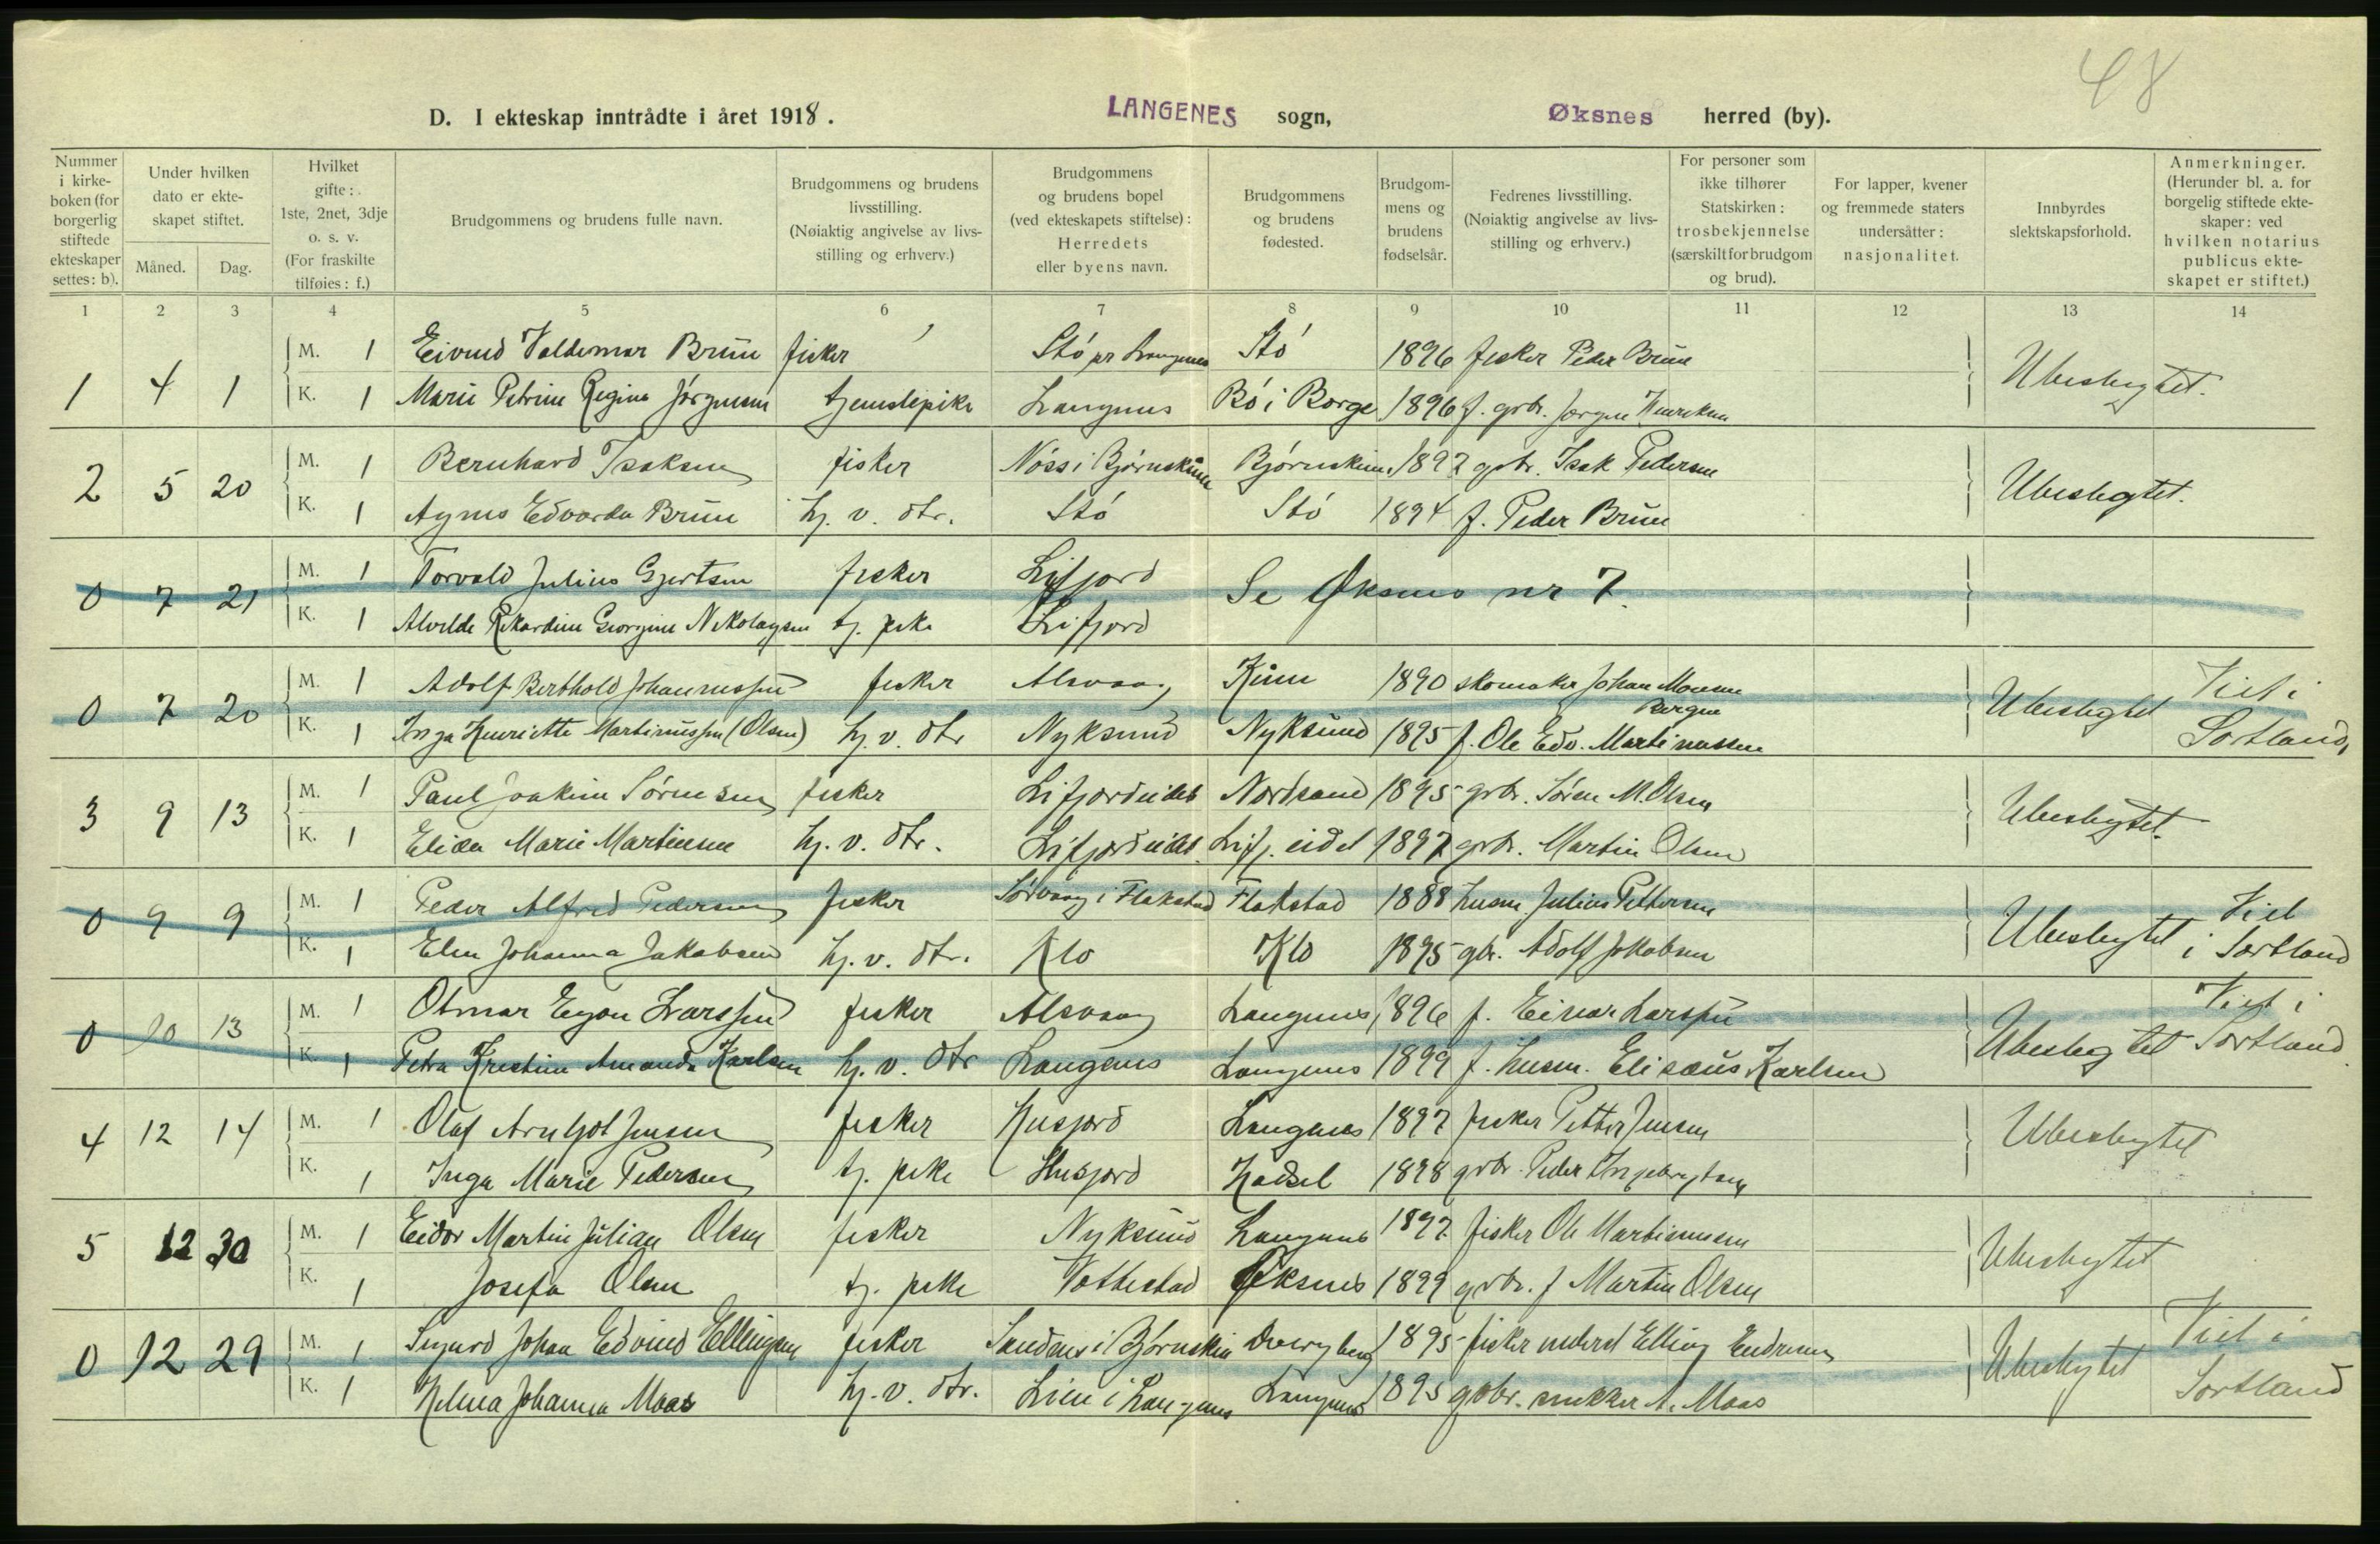 48
D. I ekteskap inntrådte i året 1918. LANGENES sogn, Øksnes herred (by).
Nummer i kirkeboken (for borgerlig stiftede ekteskaper settes: b).
Under hvilken dato er ekteskapet stiftet.
Måned. Dag.
Hvilket gifte: 1ste, 2net, 3dje o. s. v. (For fraskilte tilføies: f.)
Brudgommens og brudens fulle navn.
Brudgommens og brudens livsstilling. (Nøiaktig angivelse av livsstilling og erhverv.)
Brudgommens og brudens bopel (ved ekteskapets stiftelse): Herredets eller byens navn.
Brudgommens og brudens fødested.
Brudgommens og brudens fødselsår.
Fedrenes livsstilling. (Nøiaktig angivelse av livsstilling og erhverv.)
For personer som ikke tilhører Statskirken: trosbekjennelse (særskilt for brudgom og brud).
For lapper, kvener og fremmede staters undersåtter: nasjonalitet.
Innbyrdes slektskapsforhold.
Anmerkninger. (Herunder bl. a. for borgelig stiftede ekteskaper: ved hvilken notarius publicus ekteskapet er stiftet.)
1 2 3 4 5 6 7 8 9 10 11 12 13 14
M. 1 Eivind Valdemar Brun fisker Stó pr Langenes Stó 1896 fisker Peder Brun
1 4 1 K. 1 Marie Petrine Regine Jørgensen tjenstepike Langenes Bó i Borge 1896 f. grbr. Jørgen Henriksen Ubeslegtet.
M. 1 Bernhard Isaksen fisker Nóss i Bjørnskinn Bjørnskinn 1892 grbr. Isak Pedersen
2 5 20 K. 1 Agnes Edvarda Brun hj. v. dtr. Stó Stó 1894 f. Peder Brun Ubeslegtet.
M. 1 Torvald Julius Gjertsen fisker Lifjord Se Øksnes nr 7.
0 7 21 K. 1 Alvilde Rikardine Georgine Nikolaysen tj. pike Lifjord
M. 1 Adolf Berthold Johannessen fisker Alsvaag Kinn 1890 skomaker Johan Monsen Bergen Viet i
0 7 20 K. 1 Inga Henriette Martinussen (Olsen) hj. v. dtr Nyksund Nyksund 1895 f. Ole Edv. Martinussen Ubeslegtet Sortland,
M. 1 Paul Joakim Sørensen fisker Lifjordeidet Nordsand 1895 grbr. Søren M. Olsen
3 9 13 K. 1 Elida Marie Martinsen hj. v. dtr. Lifjordeidet Lifj. eidet 1897 grbr. Martin Olsen Ubeslegtet.
M. 1 Peder Alfred Pedersen fisker Sørvaag i Flakstad Flakstad 1888 husm. Julius Pettersen Viet
0 9 9 K. 1 Elen Johanna Jakobsen hj. v. dtr. Klo Klo 1895 gbr. Adolf Jakobsen Ubeslegtet i Sortland
M. 1 Otmar Egon Larssen fisker Alsvaag Langenes 1896 f. Einar Larssen Viet i
0 10 13 K. 1 Petra Kristine Amanda Karlsen hj. v. dtr Langenes Langenes 1899 f. husm. Elisæus Karlsen Ubeslegtet Sortland.
M. 1 Olaf Arnljot Jensen fisker Husjord Langenes 1897 fisker Petter Jensen
4 12 14 K. 1 Inga Marie Pedersen tj. pike Husjord Hadsel 1898 grbr. Peder Ingebrigtsen Ubeslegtet
M. 1 Eidor Martin Julian Olsen fisker Nyksund Langenes 1897 fisker Ole Martinussen
5 12 30 K. 1 Josefa Olsen tj. pike Vottestad Øksnes 1899 grbr. f Martin Olsen Ubeslegtet
M. 1 Sigurd Johan Edvind Ellingsen fisker Sandnes i Bjørnskin Dvergberg 1895 fisker Elling Endresen Viet i
0 12 29 K. 1 Helma Johanna Maas hj. v. dtr. Lien i Langenes Langenes 1895 grbr. snekker A. Maas Ubeslegtet Sortland